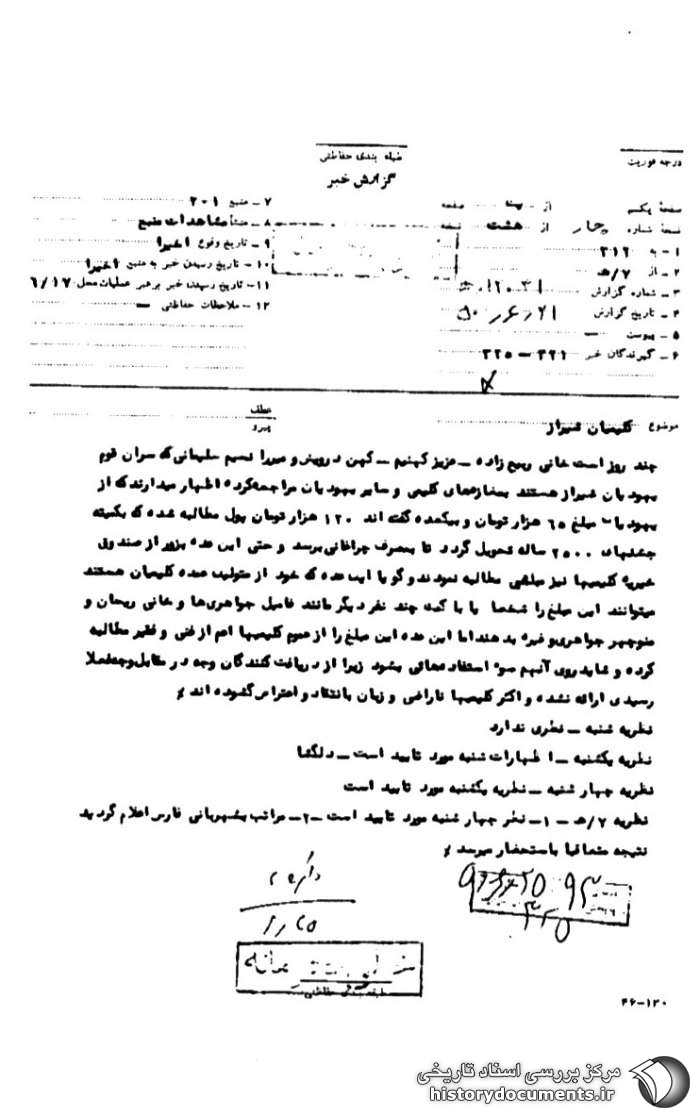 درجه فوریت
طبقه بندی حفاظتی
گزارش خبر
صفحهٔ یکم از صفحه
نسخهٔ شماره چهار از هشت نسخه
۱ـ به ۳۱۲
۲ـ از ۷/هـ
۳ـ شماره گزارش
۴ـ تاریخ گزارش
۵ـ پیوست ـ
۶ـ گیرندگان خبر ۳۲۱ـ۳۲۵
۷ـ منبع ۲۰۱
۸ـ منشأ مشاهدات منبع
۹ـ تاریخ وقوع اخیرا
۱۰ـ تاریخ رسیدن خبر به منبع اخیرا
۱۱ـ تاریخ رسیدن خبر برهبر عملیات محل ۶/۱۷
۱۲ـ ملاحظات حفاظتی ـ
موضوع کلیمیان شیراز
عطف
پیرو
چند روز است خانی ربیع زاده ـ عزیز کهنیم ـ کهن درویش و میرزا نسیم سلیمانی که سران قوم
یهودیان شیراز هستند بمغازه‌های کلیمی و سایر یهودیان مراجعه کرده اظهار میدارند که از
مبلغ ۶۵ هزار تومان و بیکعده گفته اند ۱۲۰ هزار تومان پول مطالبه شده که بکمیته
جشنهای ۲۵۰۰ ساله تحویل گردد تا بمصرف چراغانی برسد و حتی این عده بزور از صندوق
خیریه کلیمیها نیز مبلغی مطالبه نمودند و گویا این عده که خود از متولین عمده کلیمیان هستند
میتوانند این مبلغ را شخصا یا با کمک چند نفر دیگر مانند فامیل جواهری‌ها و خانی ریحان و
منوچهر جواهری و غیره بدهند اما این عده این مبلغ را از عموم کلیمیها اعم از غنی و فقیر مطالبه
کرده و شاید روی آنهم سوء استفاده‌هائی بشود زیرا از دریافت کنندگان وجه در مقابل وجه فعلا
رسیدی ارائه نشده و اکثر کلیمیها ناراضی و زبان بانتقاد و اعتراض گشوده اند ٪
نظریه شنبه ـ نظری ندارد
نظریه یکشنبه ـ اظهارات شنبه مورد تایید است ـ دلگشا
نظریه چهارشنبه ـ نظریه یکشنبه مورد تایید است
نظریه ۷/هـ ـ ۱ـ نظر چهارشنبه مورد تایید است ـ ۲ـ مراتب بشهربانی فارس اعلام گردید
نتیجه متعاقبا باستحضار میرسد ٪
طبقه بندی حفاظتی
۴۶-۱۲۰
مرکز بررسی اسناد تاریخی
historydocuments.ir